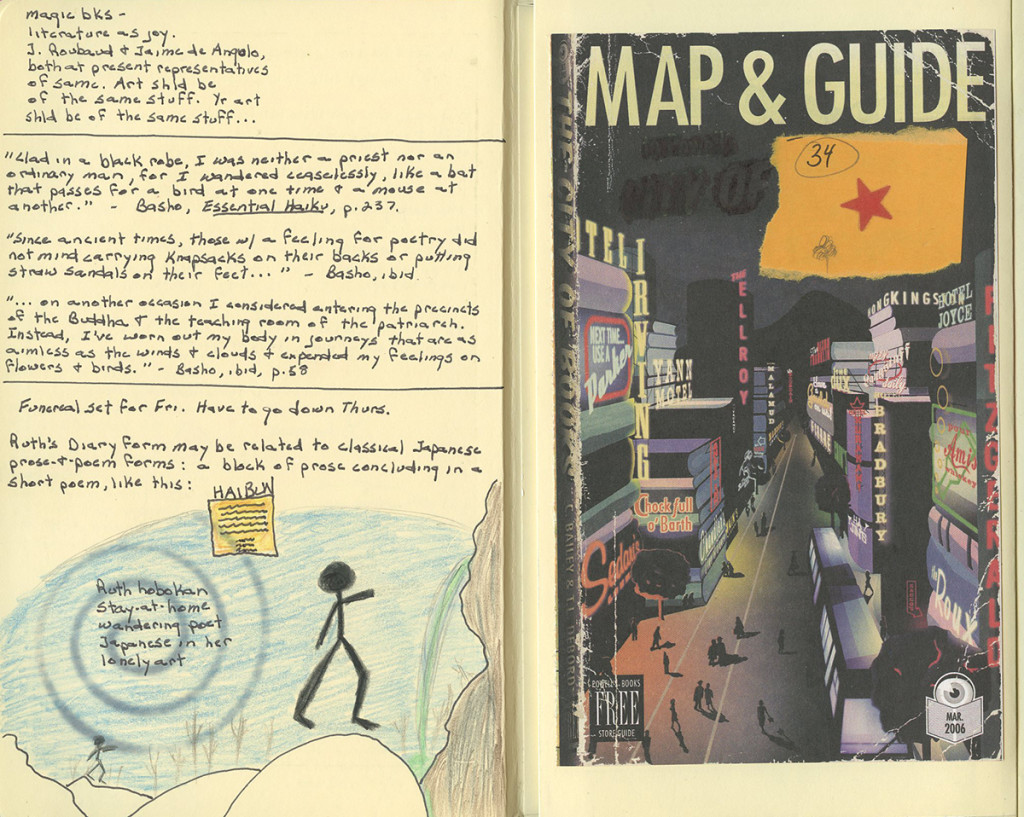 magic bks -
literature as joy.
J. Roubaud & Jaime de Angulo,
both at present representatives
of same. Art shld be
of the same stuff. Yr art
shld be of the same stuff...
"Clad in a black robe, I was neither a priest nor an
ordinary man, for I wandered ceaselessly, like a bat
that passes for a bird at one time & a mouse at
another." - Basho, Essential Haiku, p. 237.
"Since ancient times, those w/ a feeling for poetry did
not mind carrying knapsacks on their backs or putting
straw sandals on their feet..." - Basho, ibid.
"... on another occasion I considered entering the precincts
of the Buddha & the teaching room of the patriarch.
Instead, I've worn out my body in journeys that are as
aimless as the winds & clouds & expended my feelings on
flowers & birds." - Basho, ibid, p. 58
Funereal set for Fri. Have to go down Thurs.
Ruth's Diary form may be related to classical Japanese
prose-&-poem forms: a block of prose concluding in a
short poem, like this:
HAIBUN
Ruth hobokan
stay-at-home
wandering poet
Japanese in her
lonely art
MAP & GUIDE
34
CITY OF
THE CITY OF
HOTEL IRVING
THE ELLROY
KINGS
HOTEL
JOYCE
NEXT TIME...
USE A
Parker
YANN
MARTEL
MALAMUD
BRADBURY
FITZGERALD
Amis
Chock full
o' Barth
Sedaris
Roux
POWELL'S BOOKS
FREE
STORE GUIDE
MAR.
2006